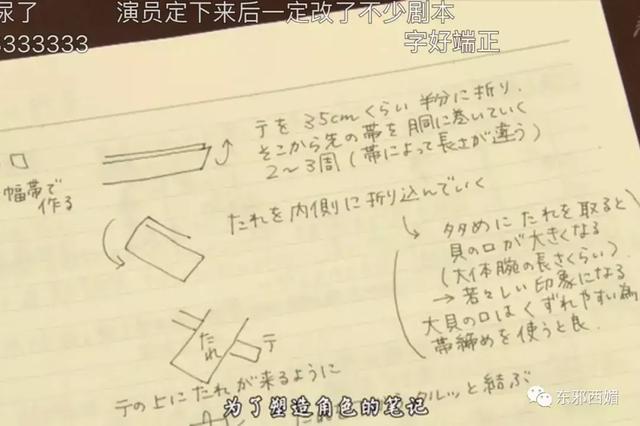 尿了
演员定下来后一定改了不少剧本
3333333
字好端正
テを35cmくらい半分に折り、
そこから先の帯を胴に巻いていく
2〜3周(帯によって長さが違う)
幅帯で
作る
たれを内側に折り込んでいく
多めにたれを取ると
貝の口が大きくなる
(大体腕の長さくらい)
→若々しい印象になる
大貝の口はくずれやすい為
帯締めを使うと良
たれ
テ
テの上にたれが来るように
クルッと結ぶ
为了塑造角色的笔记
东邪西媚